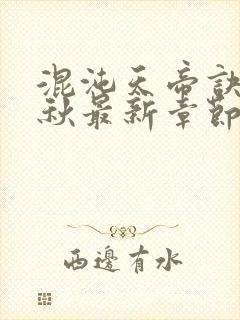 混沌天帝訣
秋最新章節
西邊有水